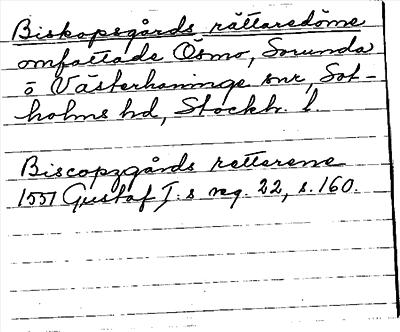 Biskopsgårds rättaredöme
omfattade Ösmo, Sorunda
o Västerhaninge snr, Sot-
holms hd, Stockh. l.
Biscopzgårds retterene
1551 Gustaf I:s reg. 22, s. 160.